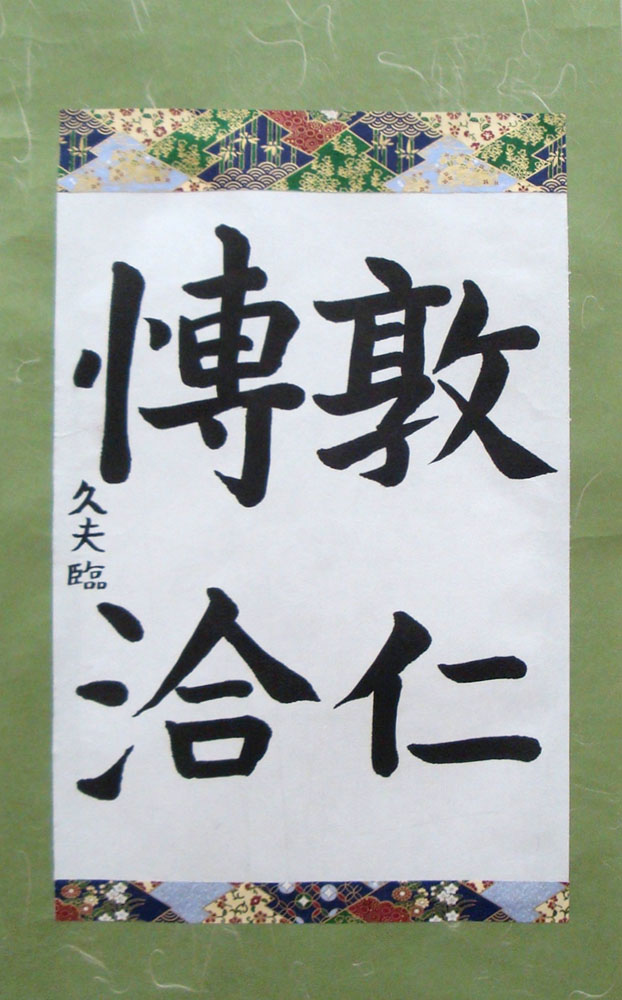 敦仁
博洽
久夫臨